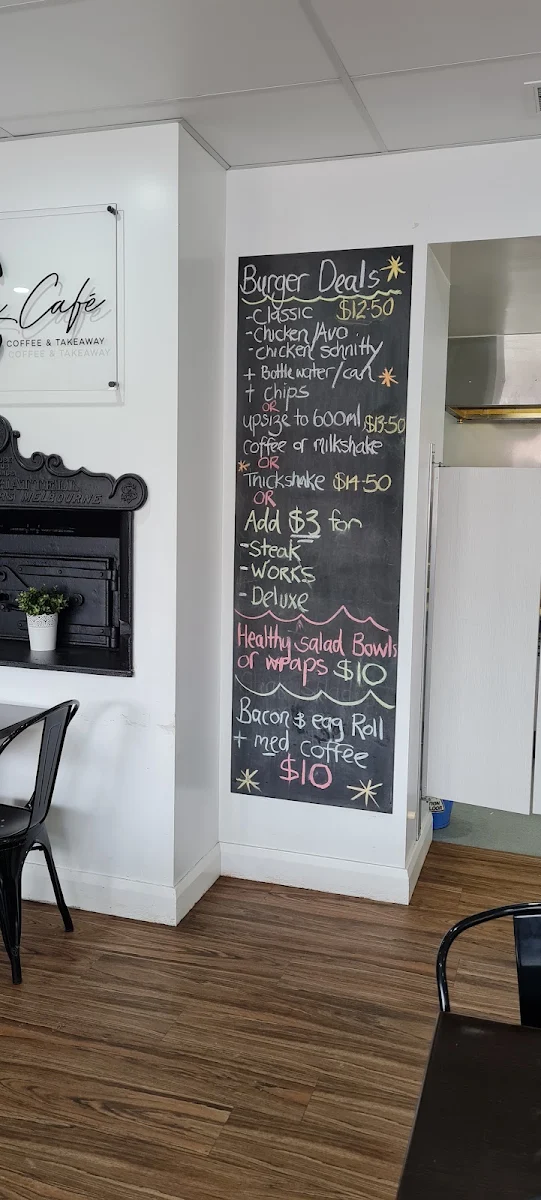 Café
COFFEE & TAKEAWAY
COFFEE & TAKEAWAY
MELBOURNE
Burger Deals
-Classic $12.50
-Chicken/Avo
-Chicken Schnitty
+ Bottle water/can
+ chips
OR
upsize to 600ml $13.50
coffee or milkshake
OR
Thickshake $14.50
OR
Add $3 for
-Steak
-WORKS
-Deluxe
Healthy Salad Bowls
or wraps $10
Bacon & egg Roll
+ med coffee
$10